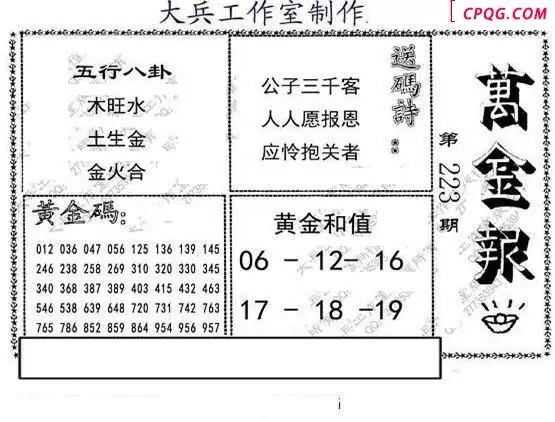 大兵工作室制作
CPQG.COM
五行八卦
木旺水
土生金
金火合
送碼詩：
公子三千客
人人愿报恩
应怜抱关者
萬金報
第223期
黃金碼：
012 036 047 056 125 136 139 145
246 238 258 269 310 320 330 345
340 368 387 389 403 415 432 463
546 538 639 648 720 731 742 763
765 786 852 859 864 954 956 957
黄金和值
06 - 12- 16
17 - 18 -19
i